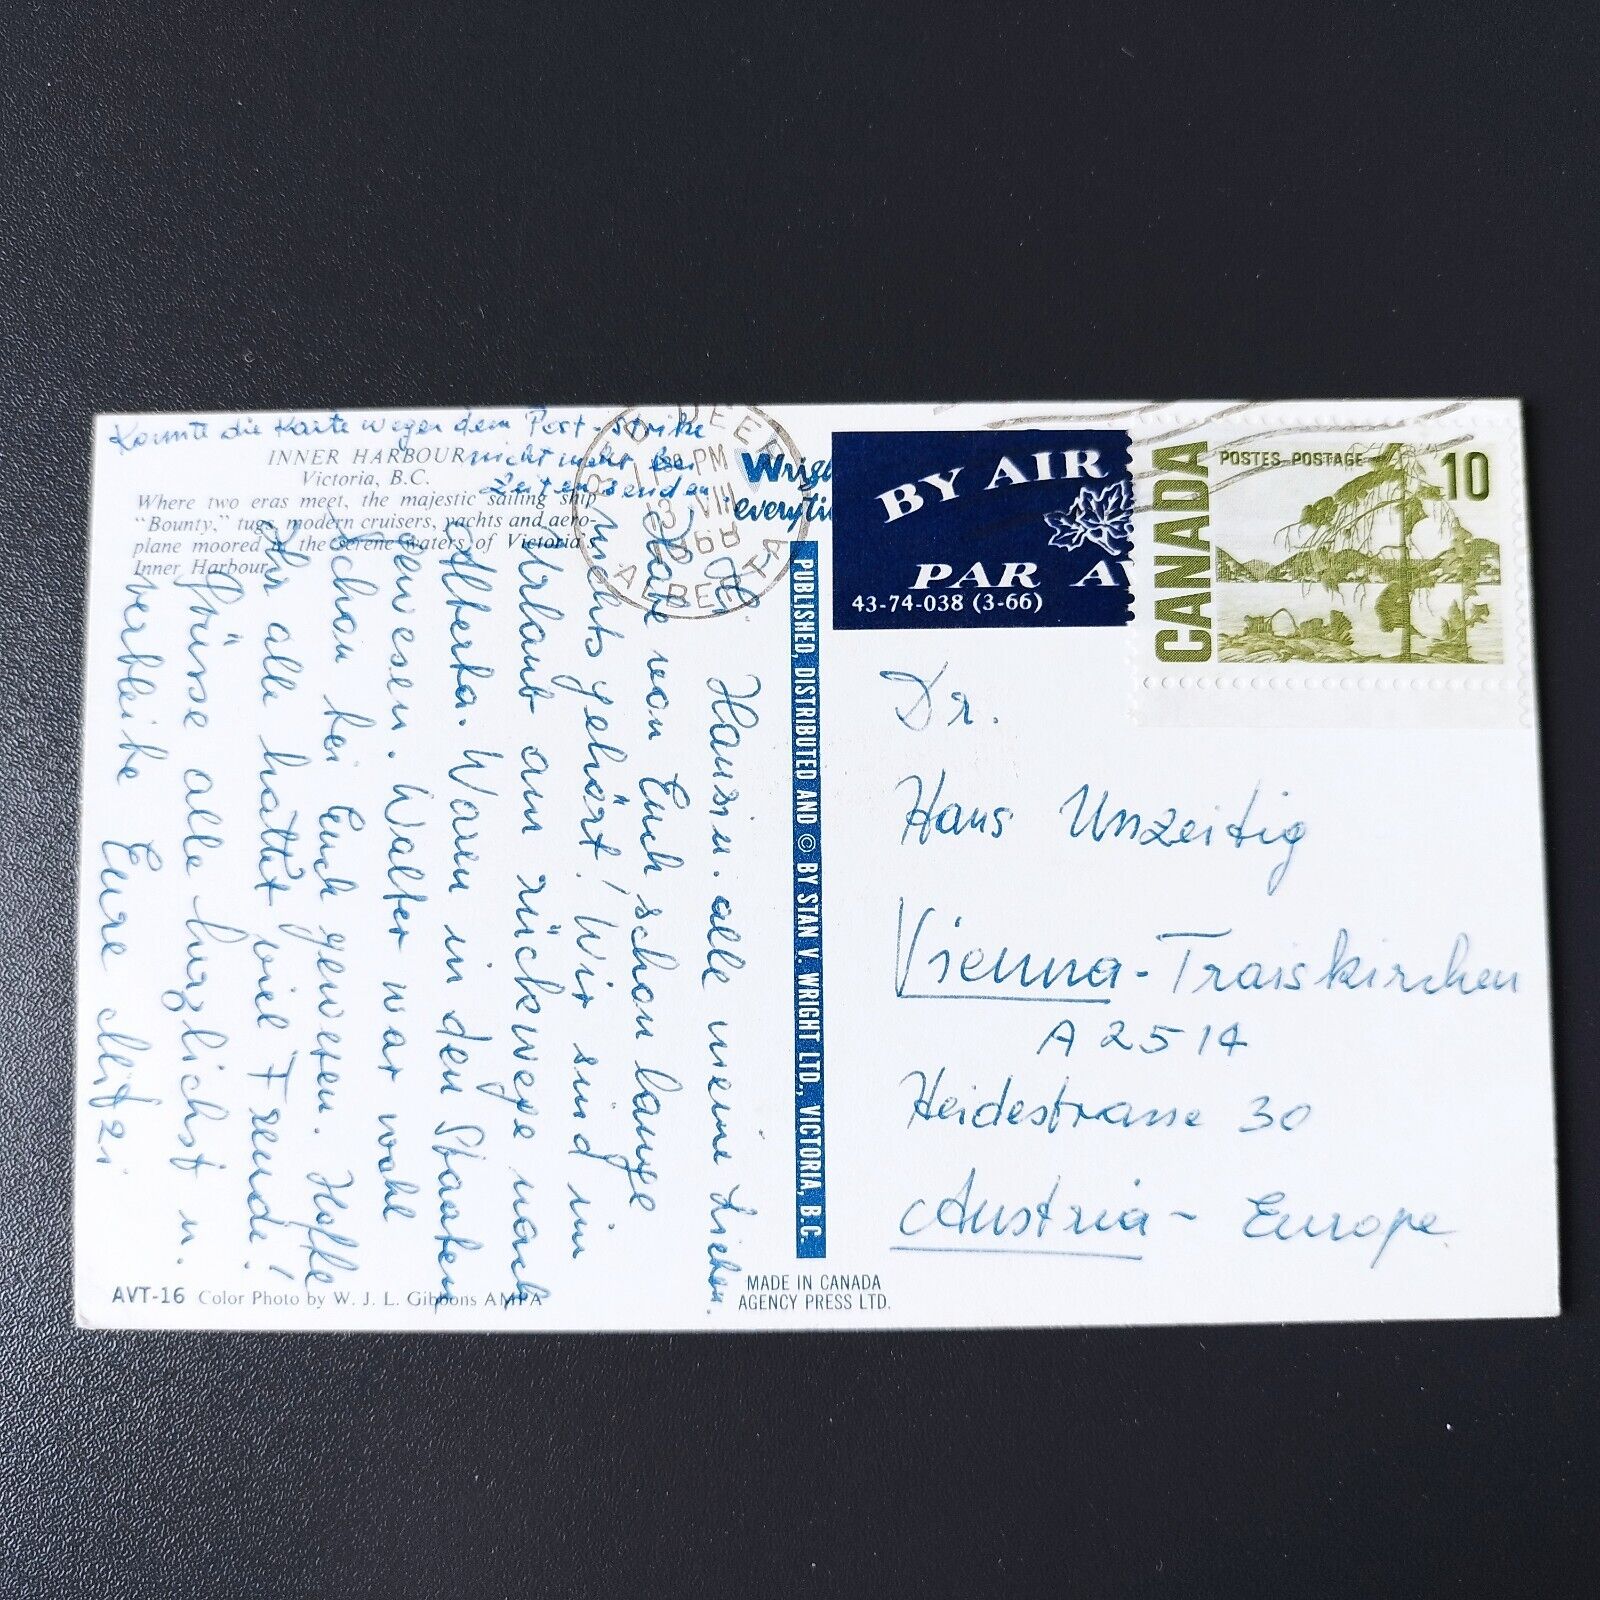 Konnte die Karte wegen dem Post-Strike
nicht mehr bei
Zeiten senden
INNER HARBOUR
Victoria, B.C.
Where two eras meet, the majestic sailing ship
"Bounty," tugs, modern cruisers, yachts and aero-
plane moored in the serene waters of Victoria's
Inner Harbour.
Hansiu. alle meine Lieben.
Habe von Euch schon lange
nichts gehört! Wir sind im
Urlaub am rückwege nach
Alberta. Waren in den Staaten
gewesen. Walter war wohl
schon bei Euch gewesen. Hoffe
Ihr alle hattet viel Freude!
Grüsse alle herzlichst u.
verbleibe Eure Mitzi
AVT-16 Color Photo by W. J. L. Gibbons AMPA
DEER
PM
VIII
1968
ALBERTA
Wrig
everythi
PUBLISHED, DISTRIBUTED AND © BY STAN V. WRIGHT LTD., VICTORIA, B.C.
MADE IN CANADA
AGENCY PRESS LTD.
BY AIR
PAR AV
43-74-038 (3-66)
CANADA
POSTES-POSTAGE
10
Dr.
Hans Unzeitig
Vienna-Traiskirchen
A 2514
Heidestrasse 30
Austria - Europe